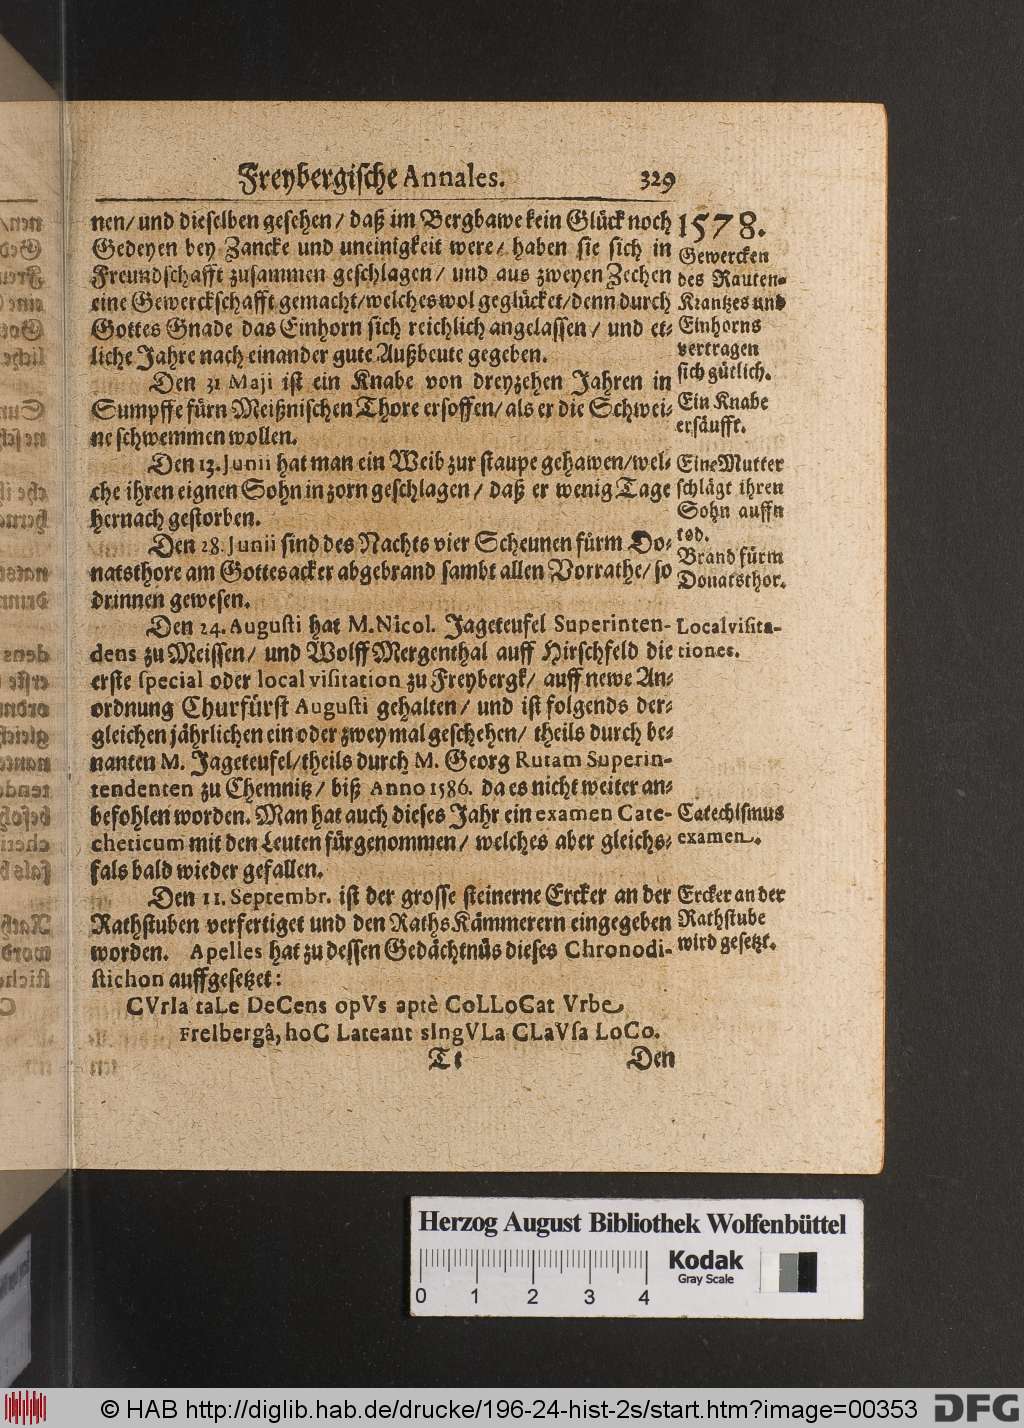 Freybergische Annales. 329
nen/ und dieselben gesehen/ daß im Bergbawe kein Glück noch
Gedeyen bey Zancke und uneinigkeit were/ haben sie sich in
Freundschafft zusammen geschlagen/ und aus zweyen Zechen
eine Gewerckschafft gemacht/ welches wol geglücket/ denn durch
Gottes Gnade das Einhorn sich reichlich angelassen/ und et-
liche Jahre nach einander gute Außbeute gegeben.
Den 31 Maji ist ein Knabe von dreyzehen Jahren in
Sumpffe fürn Meißnischen Thore ersoffen/ als er die Schwei-
ne schwemmen wollen.
Den 13. Junii hat man ein Weib zur staupe gehawen/ wel-
che ihren eignen Sohn in zorn geschlagen/ daß er wenig Tage
hernach gestorben.
Den 28. Junii sind des Nachts vier Scheunen fürm Do-
natsthore am Gottesacker abgebrand sambt allen Vorrathe/ so
drinnen gewesen.
Den 24. Augusti hat M. Nicol. Jageteufel Superinten-
dens zu Meissen/ und Wolff Mergenthal auff Hirschfeld die
erste special oder local visitation zu Freybergk/ auff newe An-
ordnung Churfürst Augusti gehalten/ und ist folgends der-
gleichen jährlichen ein oder zwey mal geschehen/ theils durch be-
nanten M. Jageteufel/ theils durch M. Georg Rutam Superin-
tendenten zu Chemnitz/ biß Anno 1586. da es nicht weiter an-
befohlen worden. Man hat auch dieses Jahr ein examen Cate-
cheticum mit den Leuten fürgenommen/ welches aber gleichs-
fals bald wieder gefallen.
Den 11. Septembr. ist der grosse steinerne Ercker an der
Rathstuben verfertiget und den Raths Kämmerern eingegeben
worden. Apelles hat zu dessen Gedächtnüs dieses Chronodi-
stichon auffgesetzet:
CVrIa taLe DeCens opVs aptè CoLLoCat Vrbe
FreIbergâ, hoC Lateant sIngVLa CLaVsa LoCo.
Tt Den
1578.
Gewercken
des Rauten-
Krantzes und
Einhorns
vertragen
sich gütlich.
Ein Knabe
ersäufft.
Eine Mutter
schlägt ihren
Sohn auffn
tod.
Brand fürm
Donatsthor.
Local visita-
tiones.
Catechismus
examen.
Ercker an der
Rathstube
wird gesetzt.
Herzog August Bibliothek Wolfenbüttel
Kodak
Gray Scale
0 1 2 3 4
© HAB http://diglib.hab.de/drucke/196-24-hist-2s/start.htm?image=00353
DFG